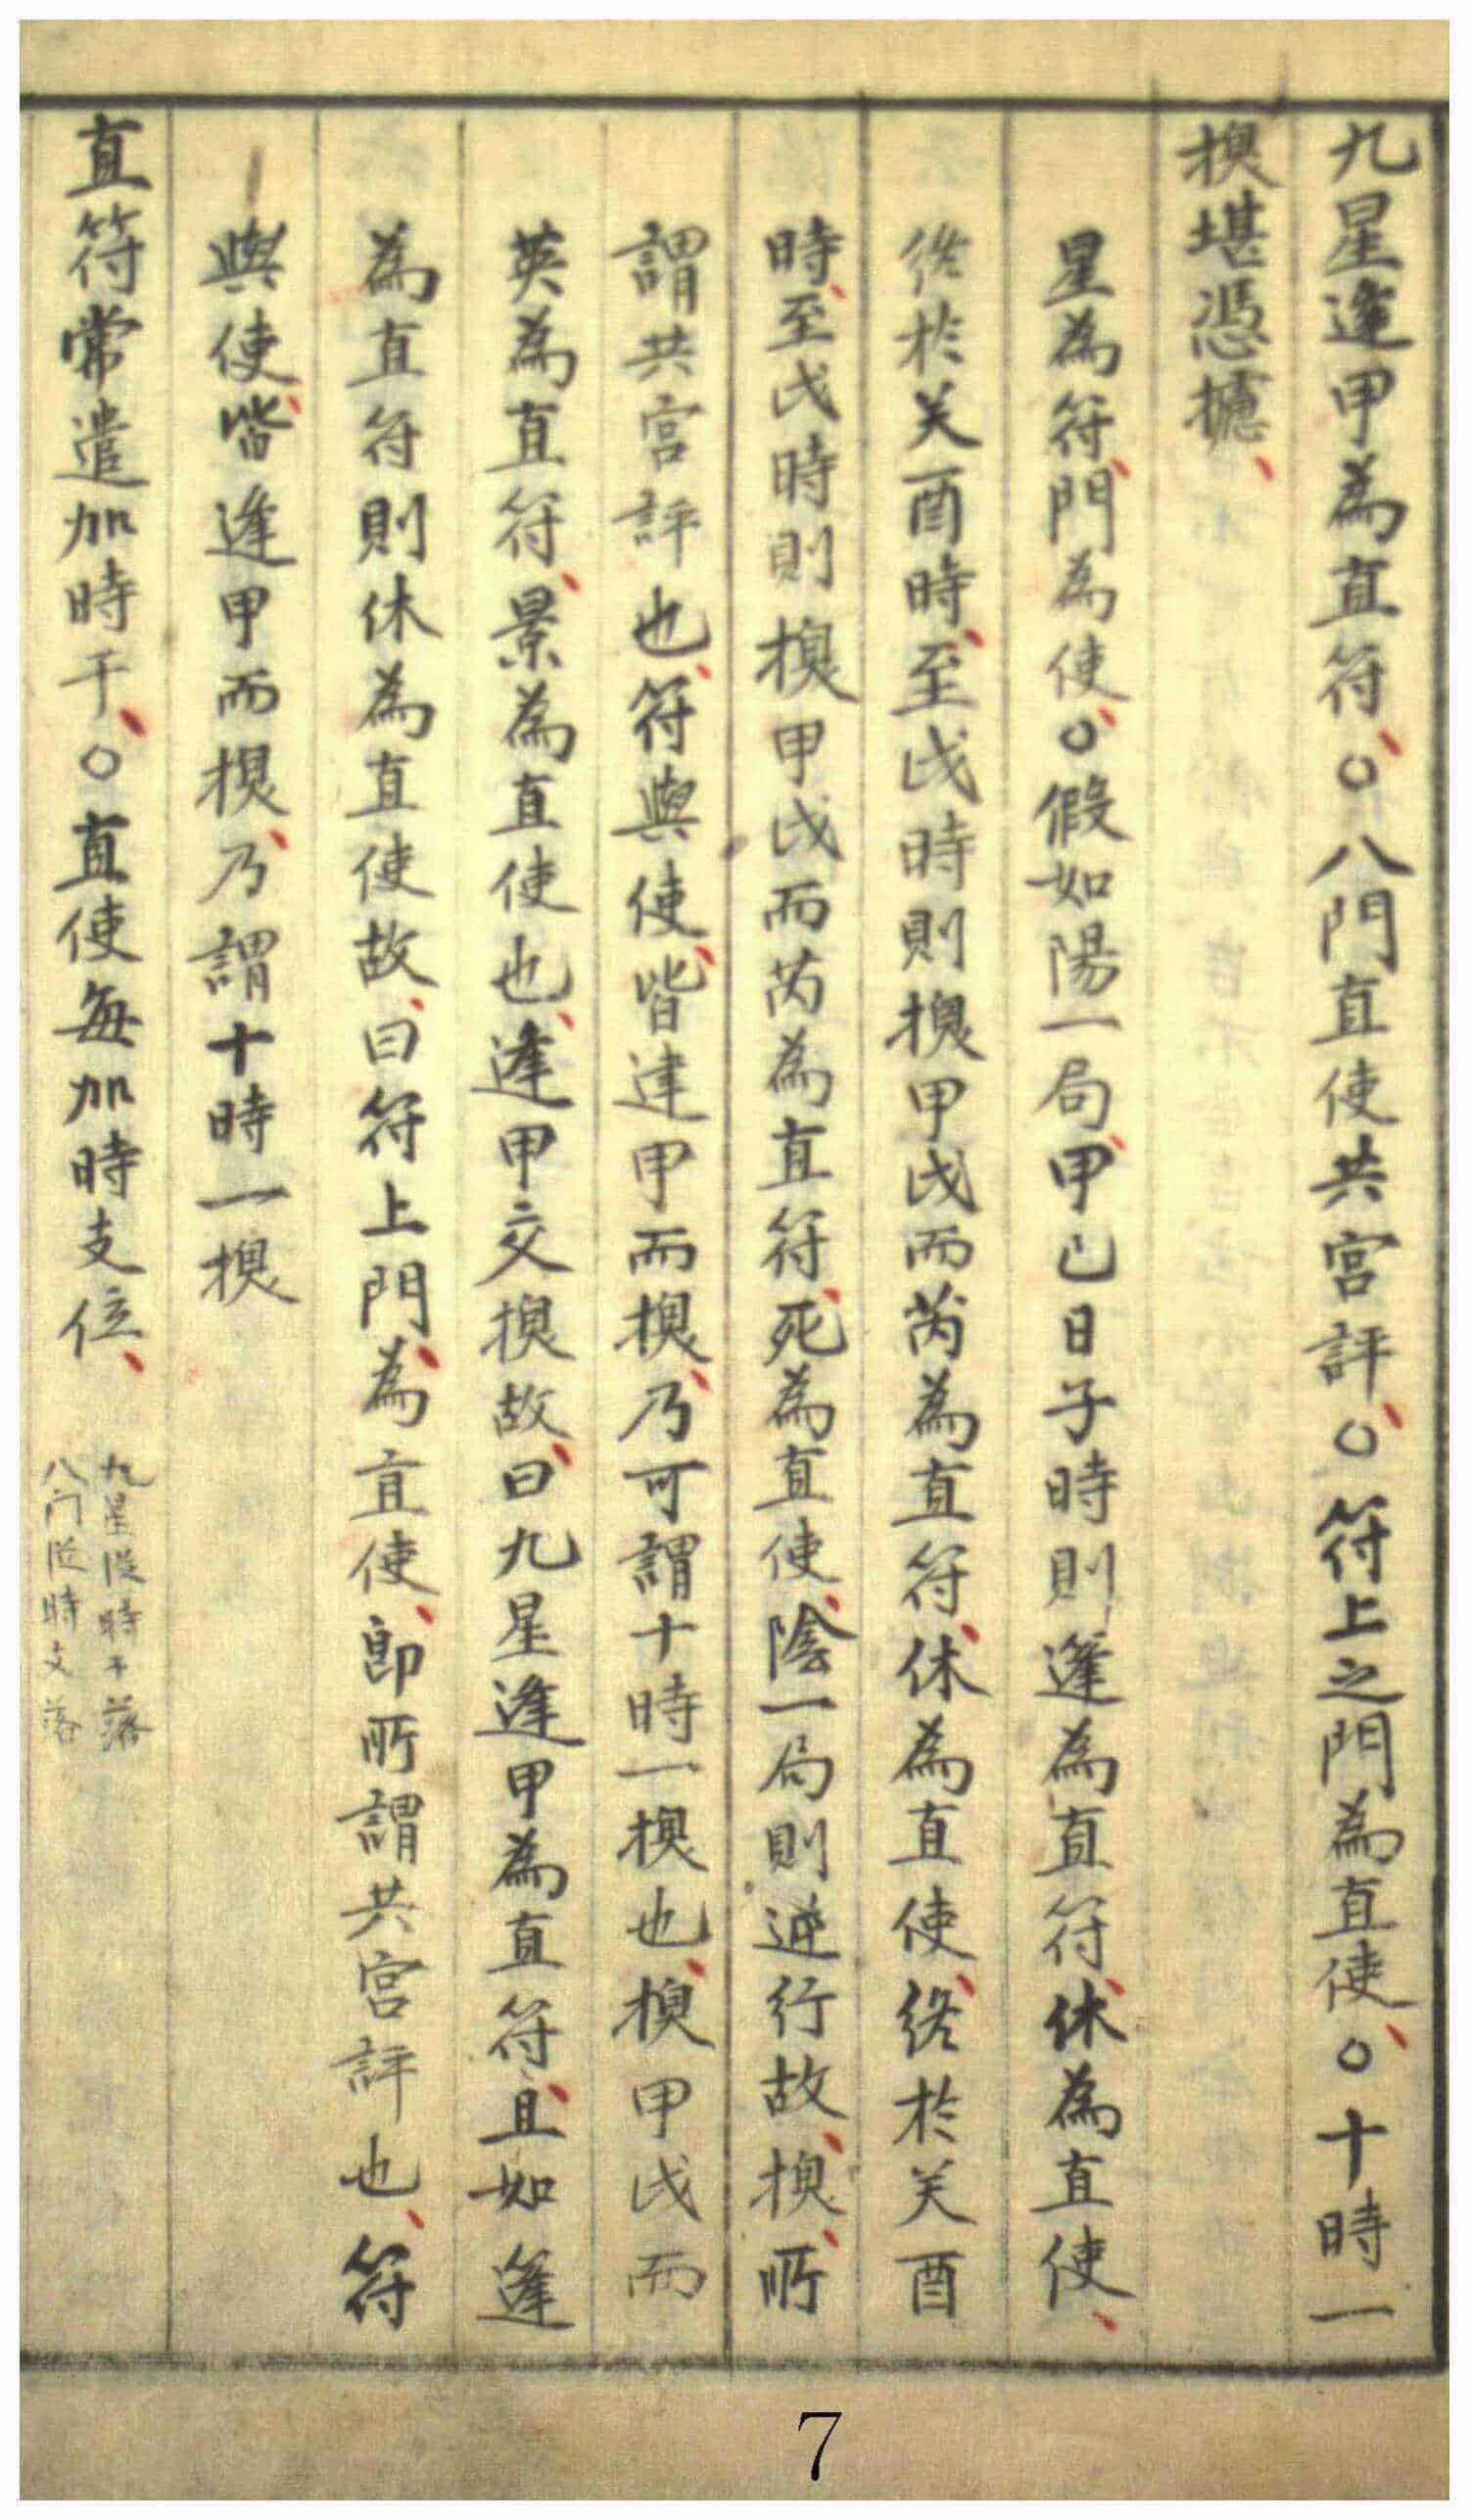 九星逢甲為直符○八門直使共宮評○符上之門為直使○十時一
換堪憑據
星為符門為使○假如陽一局甲己日子時則蓬為直符休為直使
終於癸酉時至戌時則換甲戌而芮為直符休為直使終於癸酉
時至戌時則換甲戌而芮為直符死為直使陰一局則逆行故換所
謂共宮評也符與使皆逢甲而換乃可謂十時一換也換甲戌而
英為直符景為直使也逢甲交換故曰九星逢甲為直符且如蓬
為直符則休為直使故曰符上門為直使即所謂共宮評也符
與使皆逢甲而換乃謂十時一換
直符常遣加時干○直使每加時支位
九星從時干落
八门從時支落
7